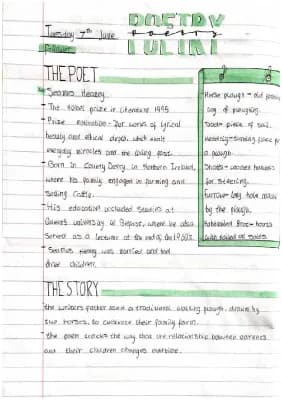 POETRY
poetry
POETRY
Tuesday 7th June
Follower
THE POET
Seamus Heaney
The Nobel prize in Literature 1995
Prize motivation - "for works of lyrical
beauty and ethical depth, which exalt
everyday miracles and the living past.
Born in County Derry in Northern Ireland,
where his family engaged in farming and
selling cattle.
His education included studies at
Queen's university at Belfast, where he also
served as a lecturer at the end of the 1960s.
Seamus Heaney was married and had
three children.
Horse plough - old fashioned
way of ploughing.
Sod = piece of soil.
Headrig - turning place for
a plough.
Shafts - wooden handles
for steering.
Furrow - long hole made
by the plough.
THE STORY
the writers father used a traditional walking plough, drawn by
two horses, to cultivate their family farm.
the poem tracks the way that the relationship between parents
and their children changes overtime.